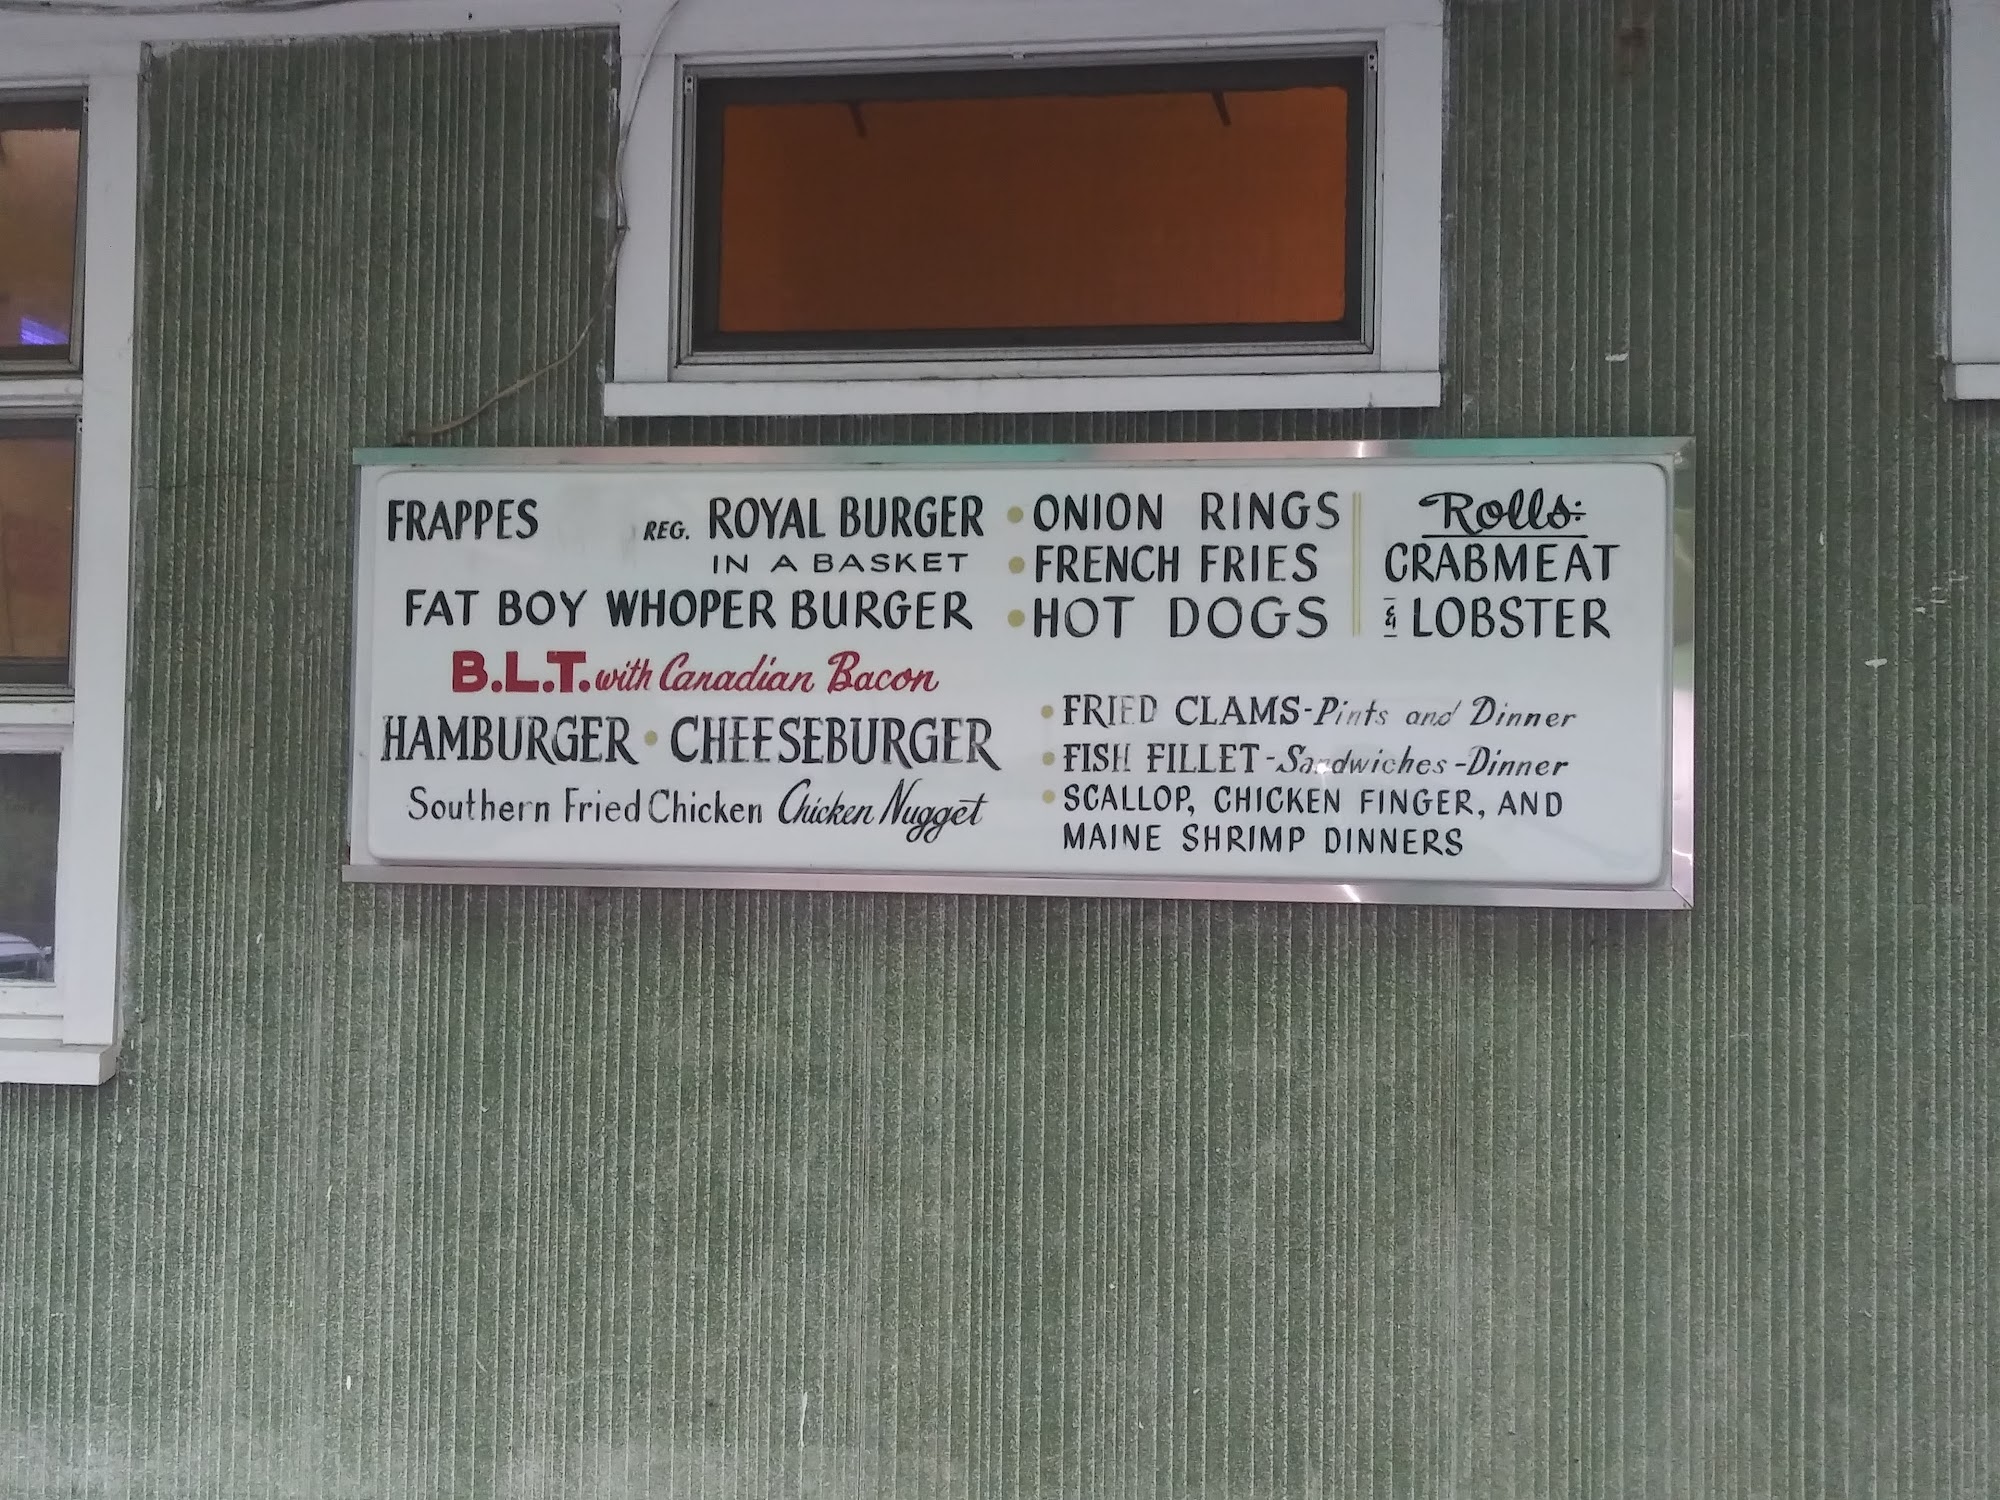 FRAPPES REG. ROYAL BURGER
IN A BASKET
FAT BOY WHOPER BURGER
B.L.T. with Canadian Bacon
HAMBURGER • CHEESEBURGER
Southern Fried Chicken Chicken Nugget
• ONION RINGS
• FRENCH FRIES
• HOT DOGS
Rolls:
CRABMEAT
& LOBSTER
• FRIED CLAMS - Pints and Dinner
• FISH FILLET - Sandwiches - Dinner
• SCALLOP, CHICKEN FINGER, AND
MAINE SHRIMP DINNERS